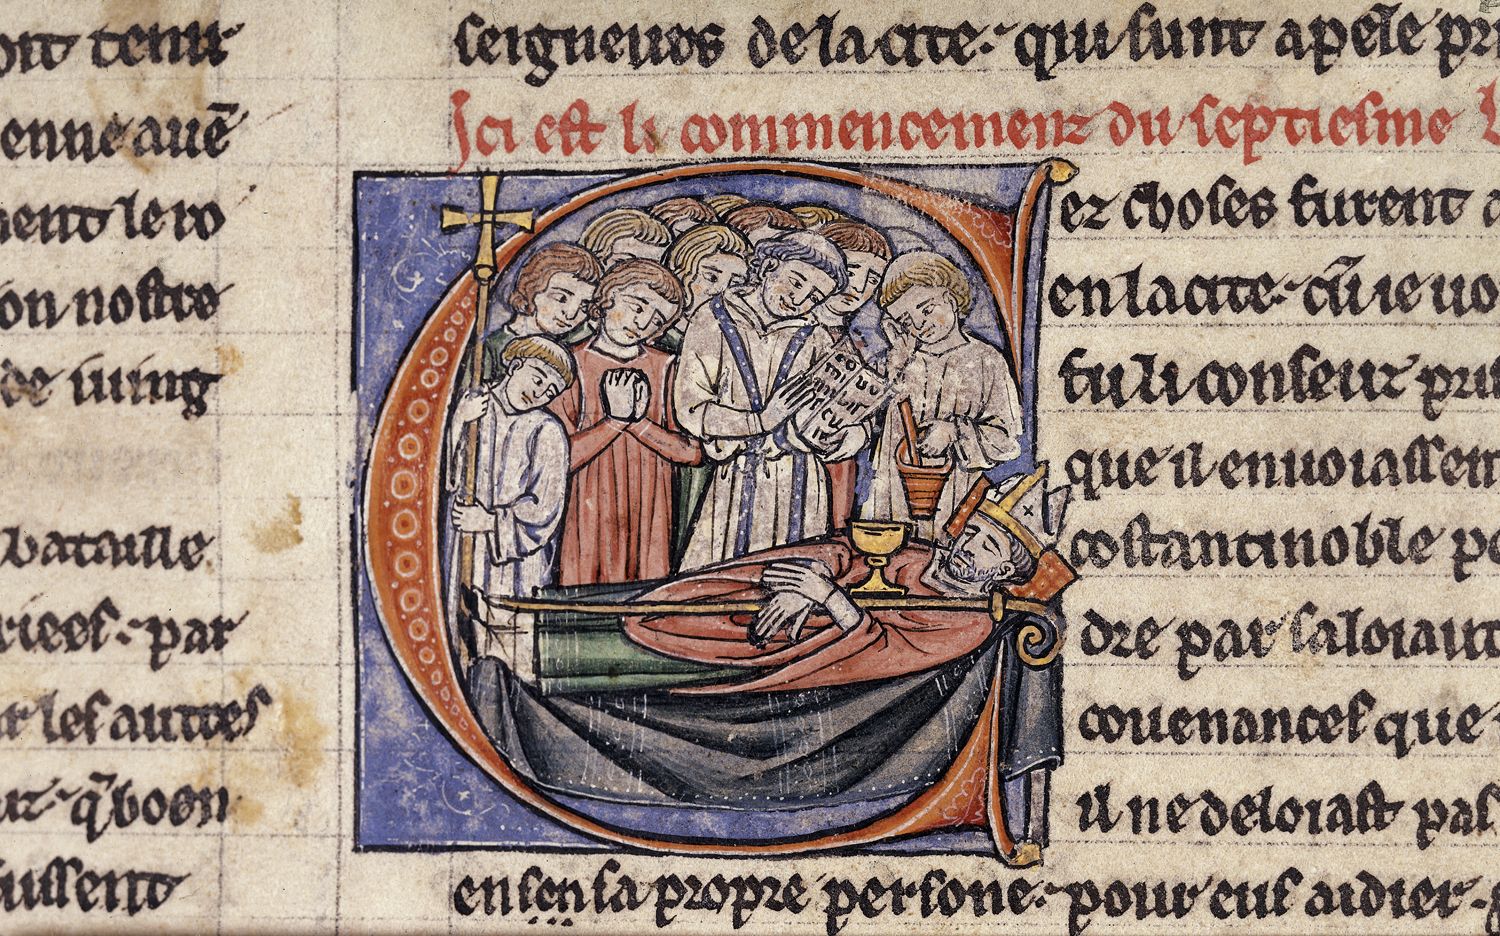 oit tenu
enne auē
nent le ro
on nostre
de uing
bataille
riees. par
r les autres
ar. q̄ boen
uissent
seigneurs de la cite. qui sunt apele pri
Ici est li commencement du septiesme L
ez choses furent a
en la cite. q̄ ie uo
fu li conseuz pris
que il enuoiassent
costantinoble pe
dre par sa loiaut
couenances que
il ne deloiast pas
en son sa propre persone. pour eus aidier.